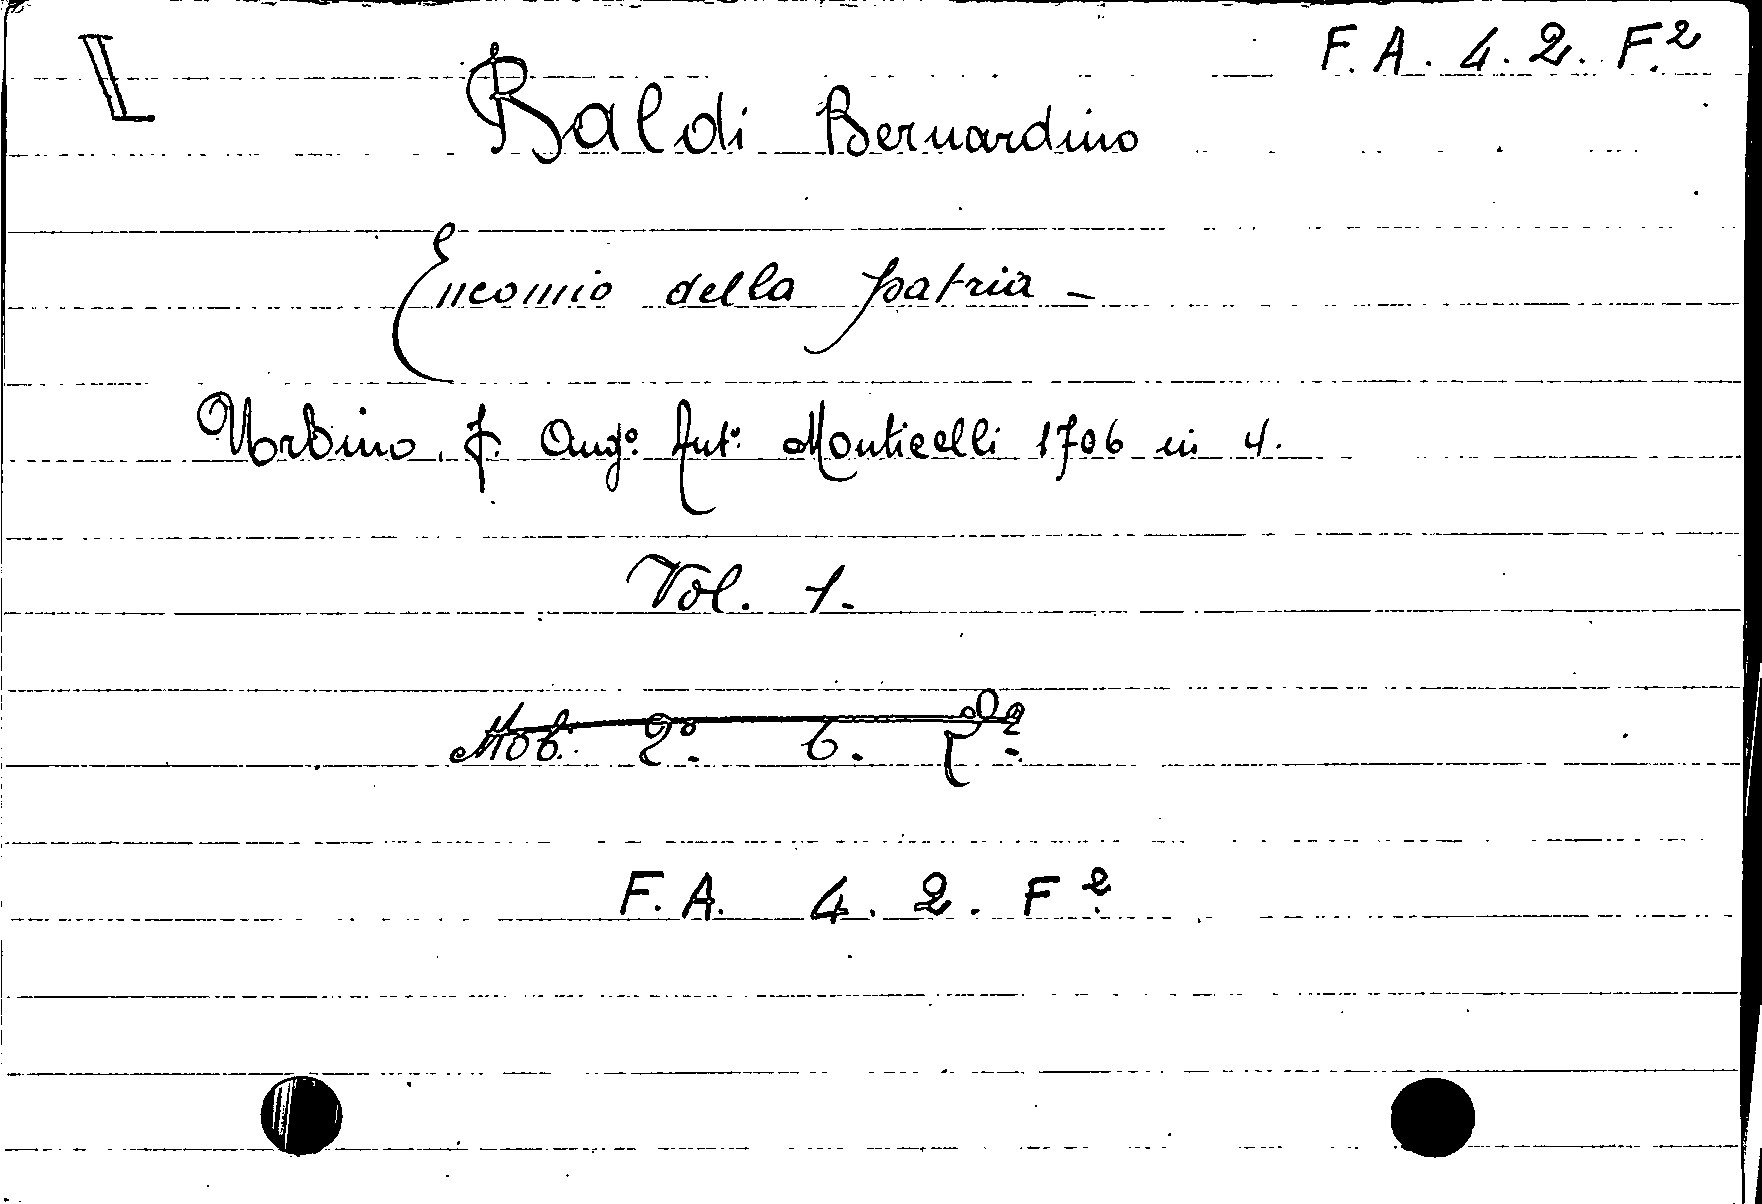 L
F. A. 4. 2. F.²
Baldi Bernardino
Encomio della patria –
Urbino. f. Angº. Antº. Monticelli 1706 in 4.
Vol. 1.
Mob. 2º. 6.
F. A. 4. 2. F²